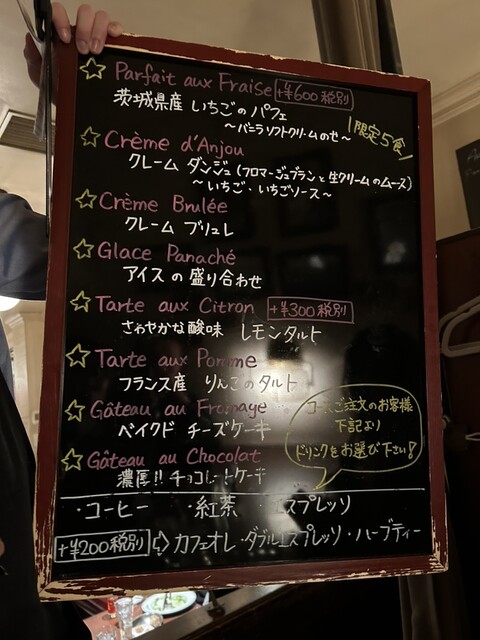 ☆ Parfait aux Fraise +¥600 税別
茨城県産 いちごのパフェ
～バニラソフトクリームのせ～ 限定5食
☆ Crème d'Anjou
クレーム ダンジュ (フロマージュブランと生クリームのムース)
～いちご・いちごソース～
☆ Crème Brulée
クレーム ブリュレ
☆ Glace Panaché
アイスの盛り合わせ
☆ Tarte aux Citron +¥300 税別
さわやかな酸味 レモンタルト
☆ Tarte aux Pomme
フランス産 りんごのタルト
☆ Gâteau au Fromage
ベイクド チーズケーキ
☆ Gâteau au Chocolat
濃厚!! チョコレートケーキ
コースご注文のお客様
下記より
ドリンクをお選び下さい!
・コーヒー ・紅茶 ・エスプレッソ
+¥200 税別 ⇨ カフェオレ・ダブルエスプレッソ・ハーブティー